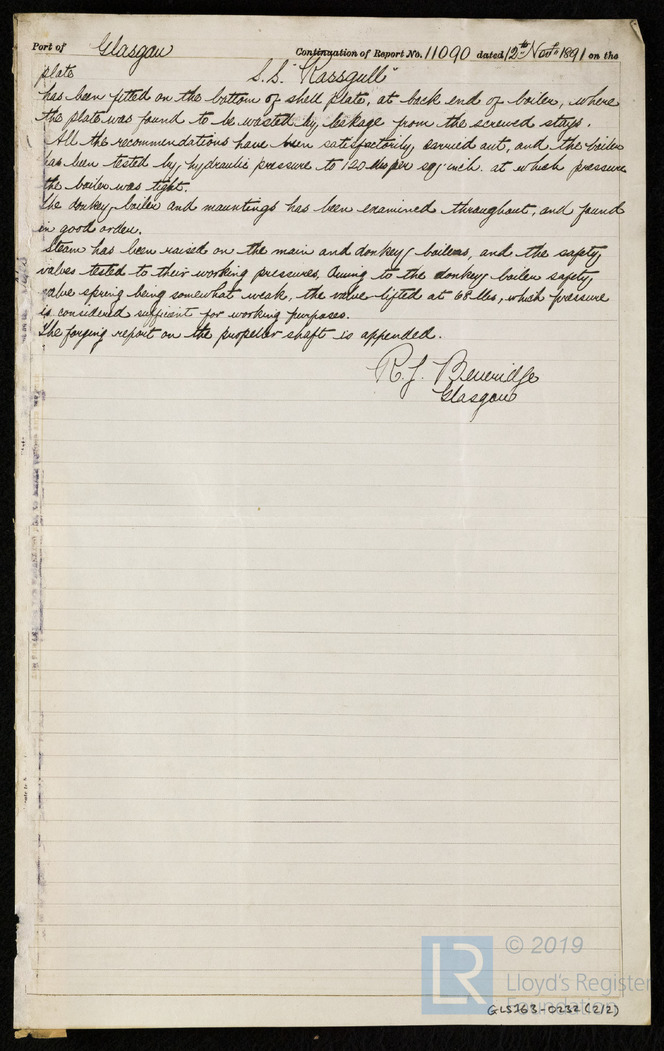 Port of Glasgow Continuation of Report No. 11090 dated 12th Novr 1891 on the
S.S. "Rossgull"
plate
has been fitted on the bottom of shell plate, at back end of boiler, where
the plate was found to be wasted by leakage from the screwed stays.
All the recommendations have been satisfactorily carried out, and the boiler
has been tested by hydraulic pressure to 120 lbs per sq. inch. at which pressure
the boiler was tight.
The donkey boiler and mountings has been examined throughout, and found
in good order.
Steam has been raised on the main and donkey boilers, and the safety
valves tested to their working pressures. Owing to the donkey boiler safety
valve spring being somewhat weak, the valve lifted at 68 lbs, which pressure
is considered sufficient for working purposes.
The forging report on the propeller shaft is appended.
R. J. Beveridge
Glasgow
LR
© 2019
Lloyd's Register
Foundation
GLS163-0232 (2/2)